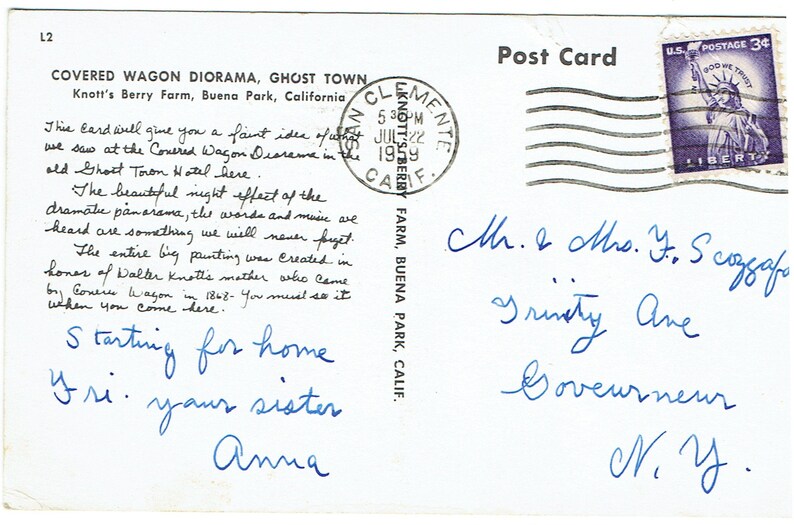 L2
COVERED WAGON DIORAMA, GHOST TOWN
Knott's Berry Farm, Buena Park, California
This card will give you a faint idea of what
we saw at the Covered Wagon Diorama in the
old Ghost Town Hotel here.
The beautiful night effect of the
dramatic panorama, the words and music we
heard are something we will never forget.
The entire big painting was created in
honor of Walter Knott's mother who came
by Covered Wagon in 1868 - You must see it
when you come here.
Starting for home
Fri. your sister
Anna
KNOTT'S BERRY FARM, BUENA PARK, CALIF.
Post Card
SAN CLEMENTE
5 30 PM
JUL 22
1959
CALIF.
U.S. POSTAGE 3¢
IN GOD WE TRUST
LIBERTY
Mr. & Mrs. F. Scozzafa
Trinity Ave
Gouverneur
N. Y.